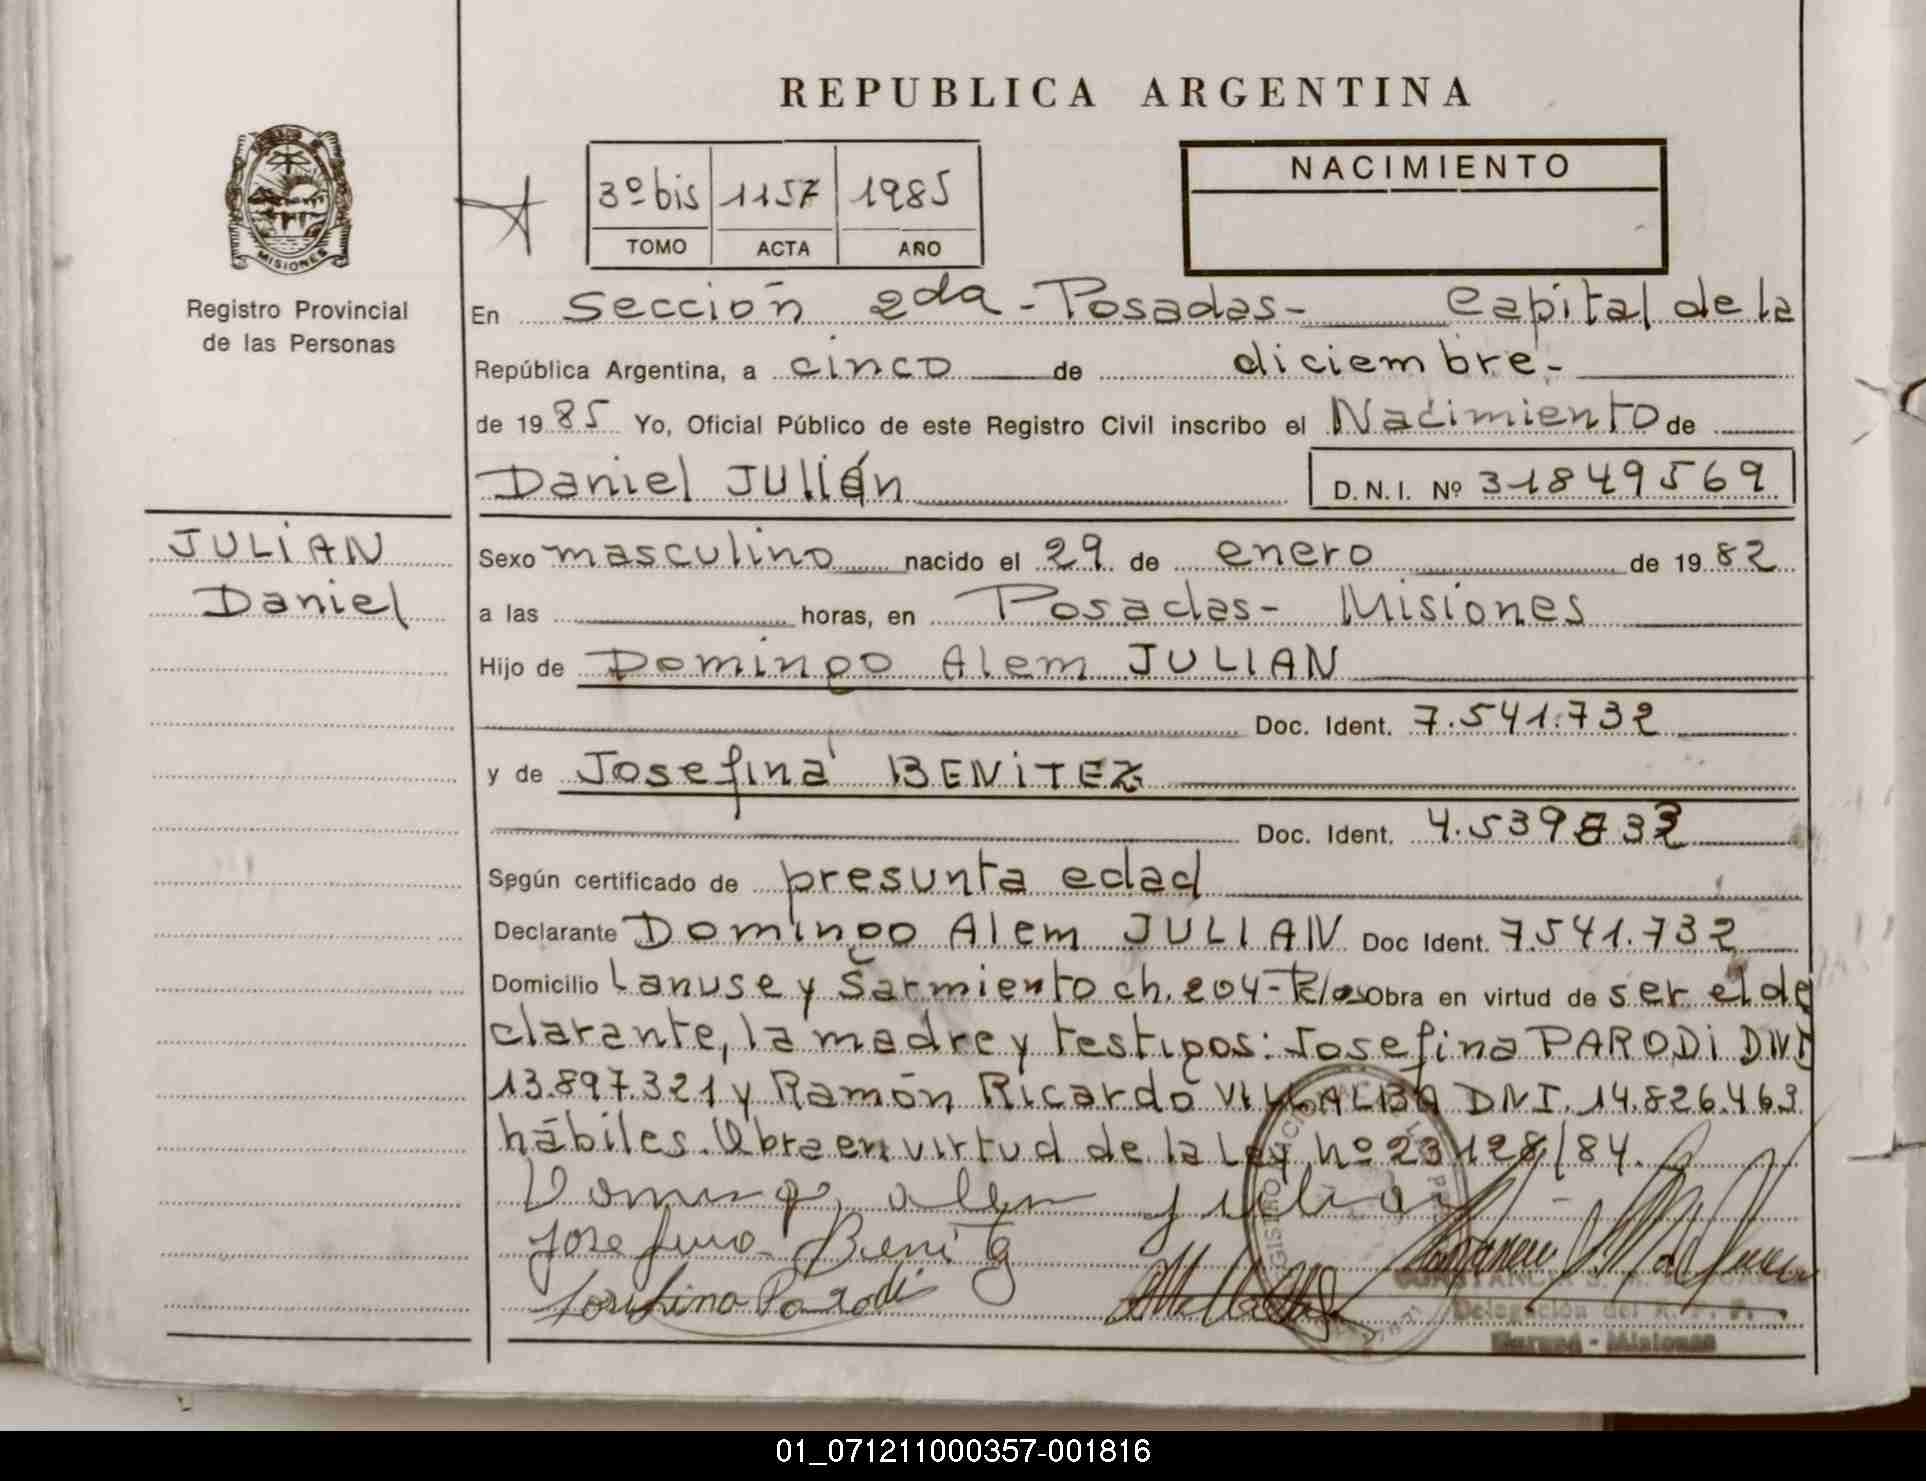 REPUBLICA ARGENTINA
MISIONES
Registro Provincial
de las Personas
3º bis 1157 1985
TOMO ACTA AÑO
NACIMIENTO
En Sección 2da - Posadas - Capital de la
República Argentina, a cinco de diciembre.-
de 1985 Yo, Oficial Público de este Registro Civil inscribo el Nacimiento de
Daniel JULIÁN D.N.I. Nº 31849569
JULIAN
Daniel
Sexo masculino nacido el 29 de enero de 1982
a las horas, en Posadas- Misiones
Hijo de Domingo Alem JULIAN
Doc. Ident. 7.541.732
y de Josefina BENITEZ
Doc. Ident. 4.539832
Según certificado de presunta edad
Declarante Domingo Alem JULIAN Doc Ident. 7.541.732
Domicilio Lanuse y Sarmiento ch. 204- Obra en virtud de ser el de
clarante, la madre y testigos: Josefina PARODI DNI
13.897.321 y Ramón Ricardo VILLALBA DNI. 14.826.463
hábiles. Obra en virtud de la Ley nº 23128/84.
Domingo alem julian
Josefina Benitez
Josefina Parodi
Delegación del R. P. P.
- Misiones
01_071211000357-001816